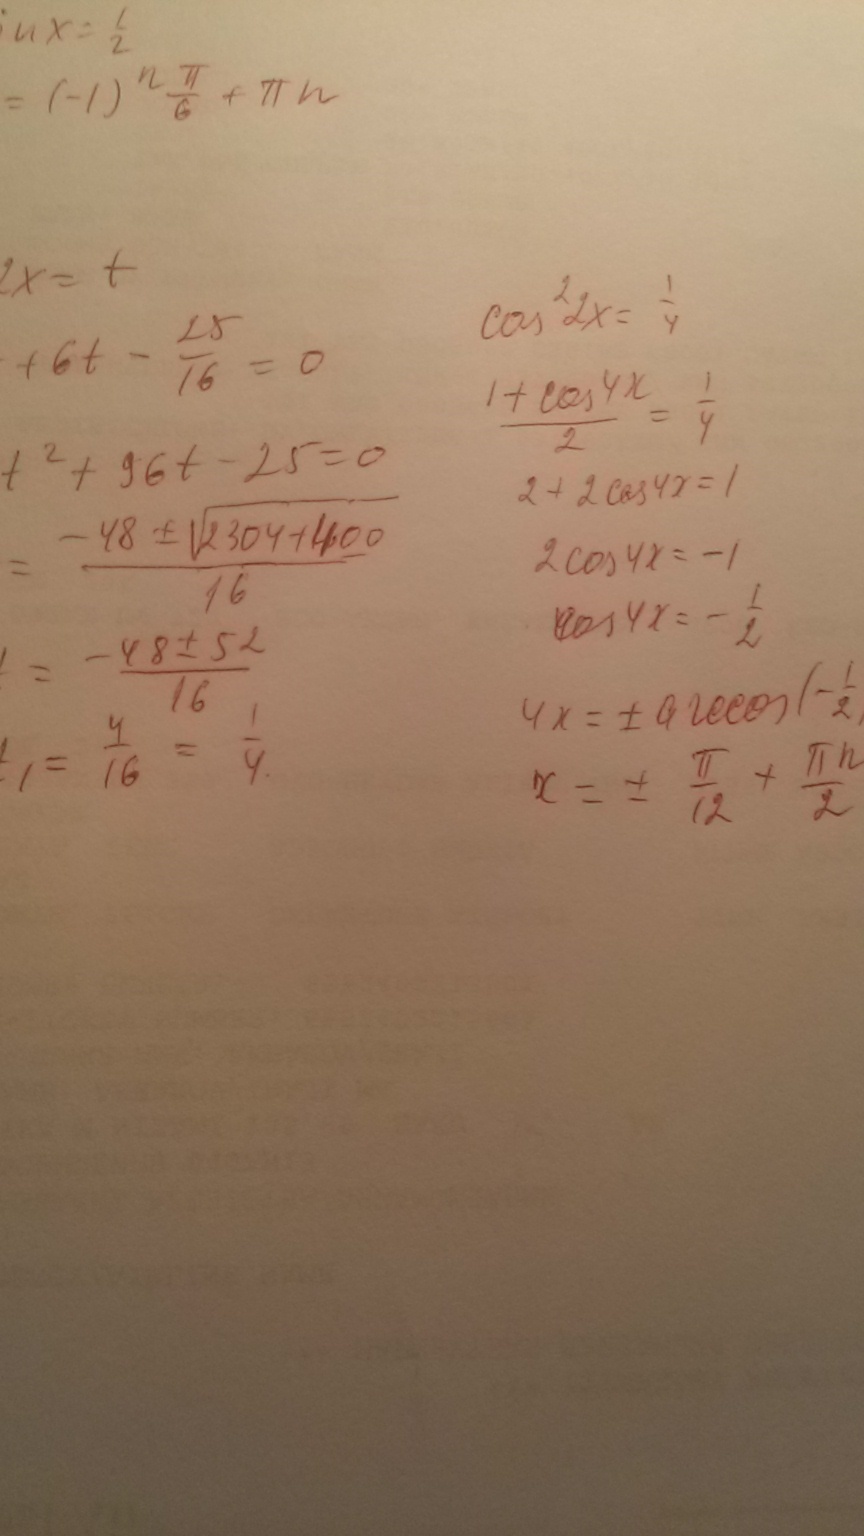 inx = 1/2
= (-1)^n π/6 + πn
2x = t
+ 6t - 25/16 = 0
t² + 96t - 25 = 0
= (-48 ± √(2304+400))/16
t = (-48 ± 52)/16
t₁ = 4/16 = 1/4.
cos²2x = 1/4
(1 + cos4x)/2 = 1/4
2 + 2cos4x = 1
2cos4x = -1
cos4x = -1/2
4x = ± arccos(-1/2)
x = ± π/12 + πn/2